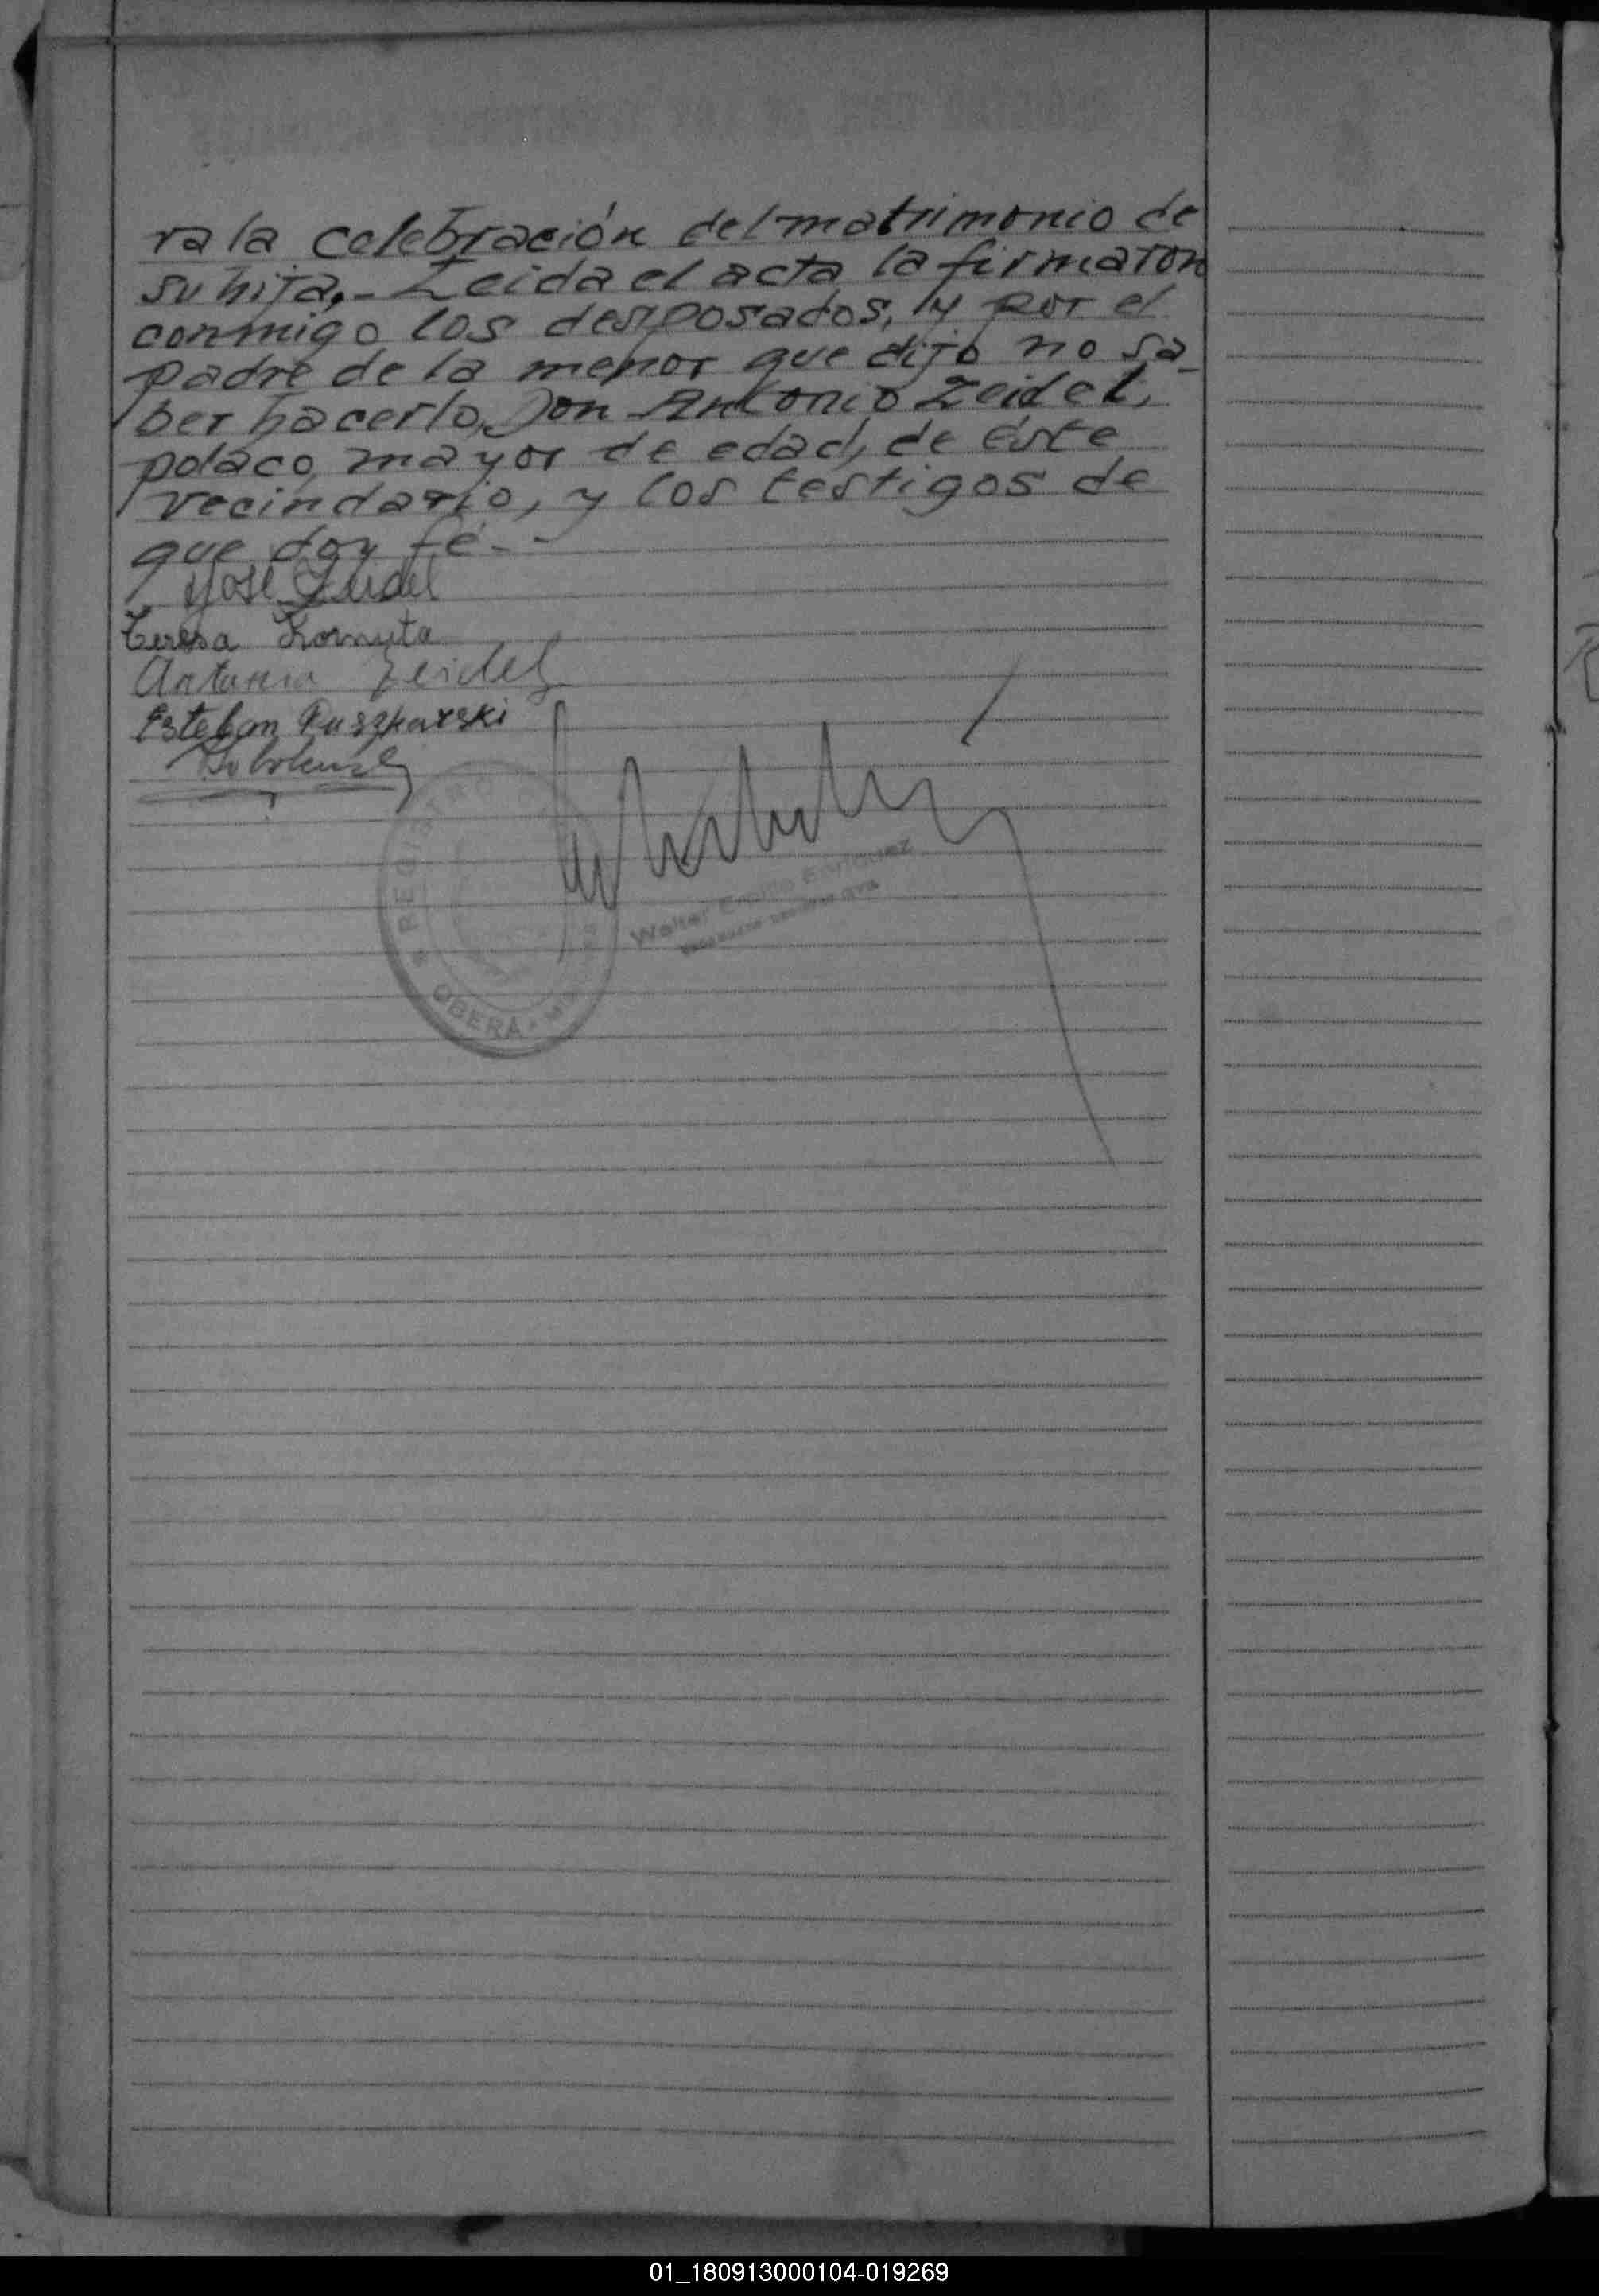 ra la celebración del matrimonio de
su hija.- Leida el acta la firmaron
conmigo los desposados, y por el
padre de la menor que dijo no sa-
ber hacerlo, Don Antonio Zeidel,
polaco, mayor de edad, de éste
vecindario, y los testigos de
que doy fé.-
José Zeidel
Teresa Kornuta
Antonio Zeidel
Esteban Puszkarski
REGISTRO
OBERÁ
Walter Emilio Enriquez
01_180913000104-019269